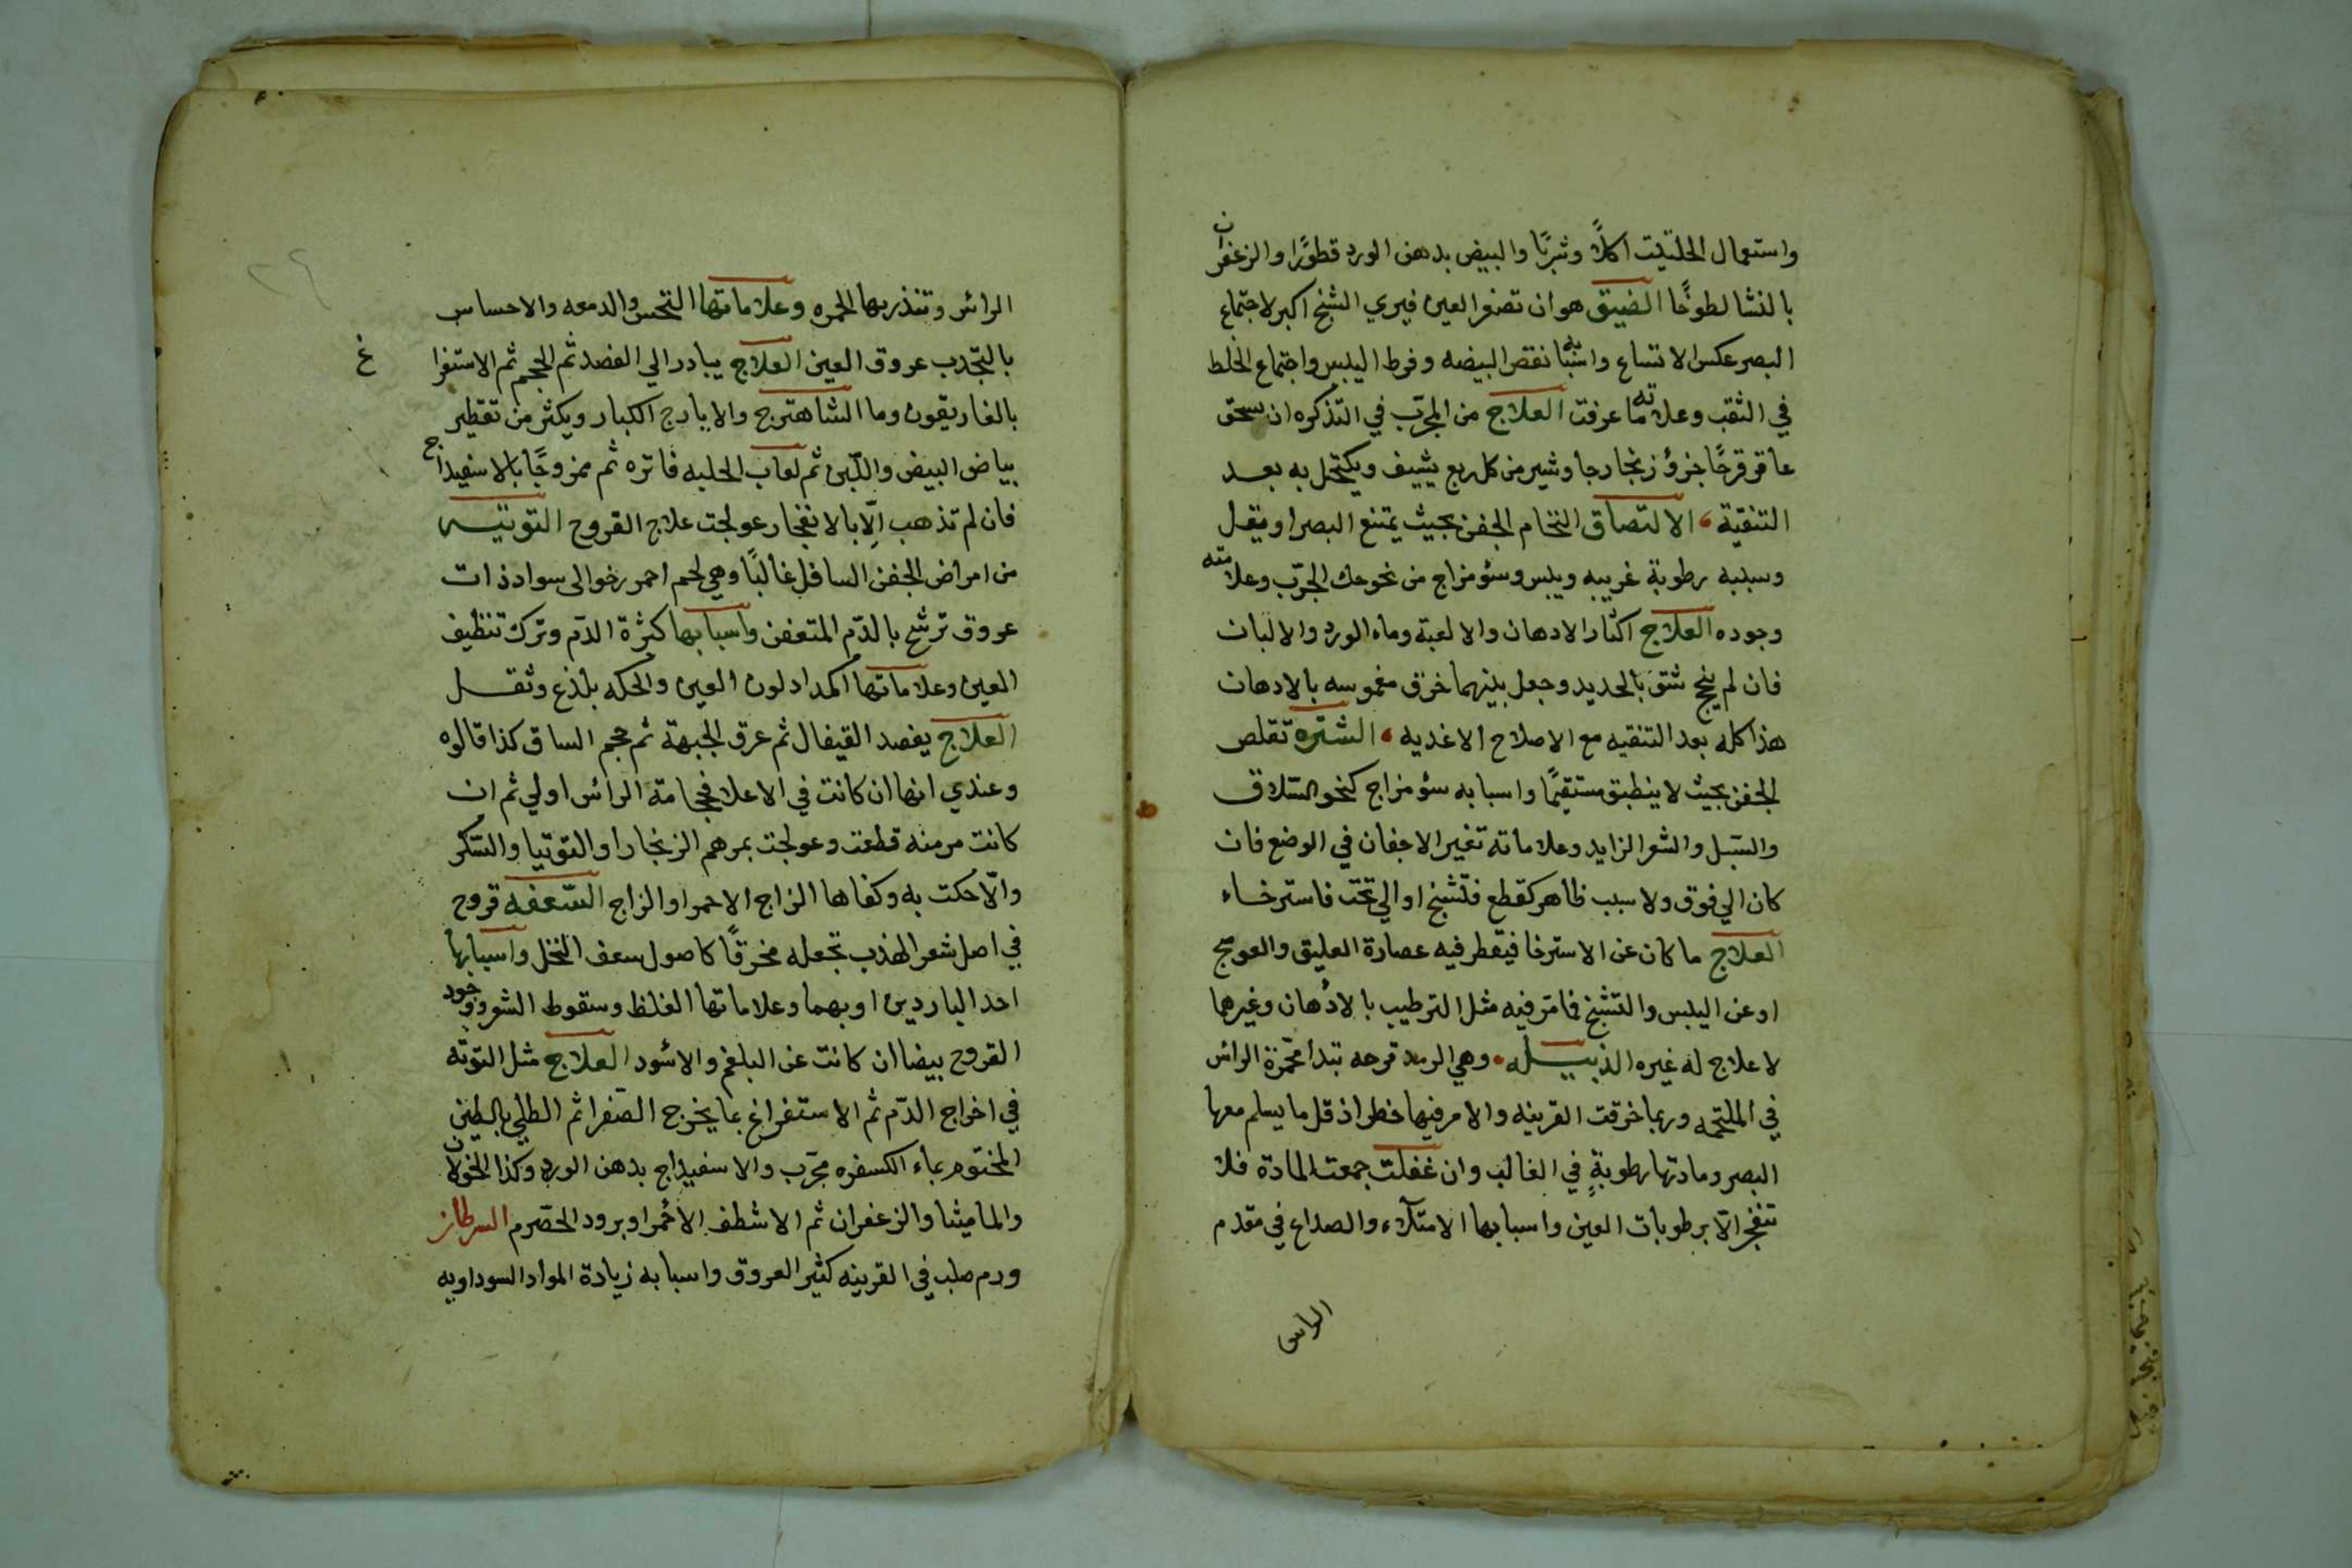 واستعمال الحلتيت اكلاً وشربًا والبيض بدهن الورد قطورًا والزعفران
بالنشا لطوخًا الضيق هو ان تصغر العين فيري الشبح اكبر لاجتماع
البصر عكس الاتساع واسبابه نقص البيضه وفرط اليبس واجتماع الخلط
في الثقب وعلاماته ما عرفت العلاج من المجرّب في التذكره ان سحق
عاقرقرحًا جزؤ زنجار جاوشير من كل ربع يشيف ويكتحل به بعد
التنقية الالتصاق التحام الجفن بحيث يمتنع البصر او يقل
وسببه رطوبة غريبه ويبس وسؤ مزاج من نحو حك الجرّب وعلامته
وجوده العلاج اكثار الادهان والالعبة وماء الورد والالبان
فان لم ينجح شق بالحديد وجعل بينهما خرق مغموسه بالادهان
هذا كله بعد التنقيه مع الاصلاح الاغديه الشتره تقلص
الجفن بحيث لا ينطبق مستقيمًا واسبابه سؤ مزاج كنحو السّلاق
والسّبل والشعر الزايد وعلاماته تغير الاجفان في الوضع فان
كان الي فوق ولا سبب ظاهر كقطع فتشنج او الي تحت فاسترخاء
العلاج ما كان عن الاسترخا فيقطر فيه عصارة العليق والعوسج
او عن اليبس والتشنج فامر فيه مثل الترطيب بالادهان وغيرها
لا علاج له غيره الدبيله وهي الرمد قرحه تبدا محمّرة الراس
في الملتحمه وربما خرقت القرينه والامر فيها خطر اذ قل ما يسلم معها
البصر ومادتها رطوبةٍ في الغالب وان غفلت جمعت المادة فلا
تنفجر الّا برطوبات العين واسبابها الامتلآء والصداع في مقدم
الراس
الرائس وتنذر بها الحمره وعلاماتها النخس والدمعه والاحساس
بالتجّدب عروق العين العلاج يبادر الي الفصد ثم الحجم ثم الاستفراغ
بالغاريقون وما الشاهترج والايارج الكبار ويكثر من تقطير
بياض البيض واللّبن ثم لعاب الحلبه فاتره ثم ممزوجًا بالاسفيداج
فان لم تذهب الّا بالانفجار عولجت علاج القروح التوتيه
من امراض الجفن السافل غالبًا وهي لحم احمر رخو الى سواد ذات
عروق ترشح بالدّم المتعفن واسبابها كثرة الدّم وترك تنظيف
العين وعلاماتها اكمداد لون العين والحكه بلذع وثقل
العلاج يفصد القيفال ثم عرق الجبهة ثم حجم الساق كذا قالوه
وعندي انها ان كانت في الاعلا فحجامة الرائس اولي ثم ان
كانت مرمنه قطعت وعولجت بمرهم الزنجار او التوتيا والسّكر
والّا حكت به وكفاها الزاج الاحمر او الزاج السّعفه قروح
في اصل شعر الهدب تجعله مخرقًا كاصول سعف النخل واسبابها
احد الباردين او بهما وعلاماتها الغلظ وسقوط الشعر ووجود
القروح بيضا ان كانت عن البلغم والا سود العلاج مثل التوته
في اخراج الدّم ثم الاستفراغ بما يخرج الصّفرا ثم الطلي بالطين
المختوم بماء الكسفره مجرّب والاسفيداج بدهن الورد وكذا الخولان
والماميثا والزعفران ثم الاشطف الاحمر او برود الحصّرم السرطان
ورم صلب في القرينه كثير العروق واسبابه زيادة المواد السوداويه